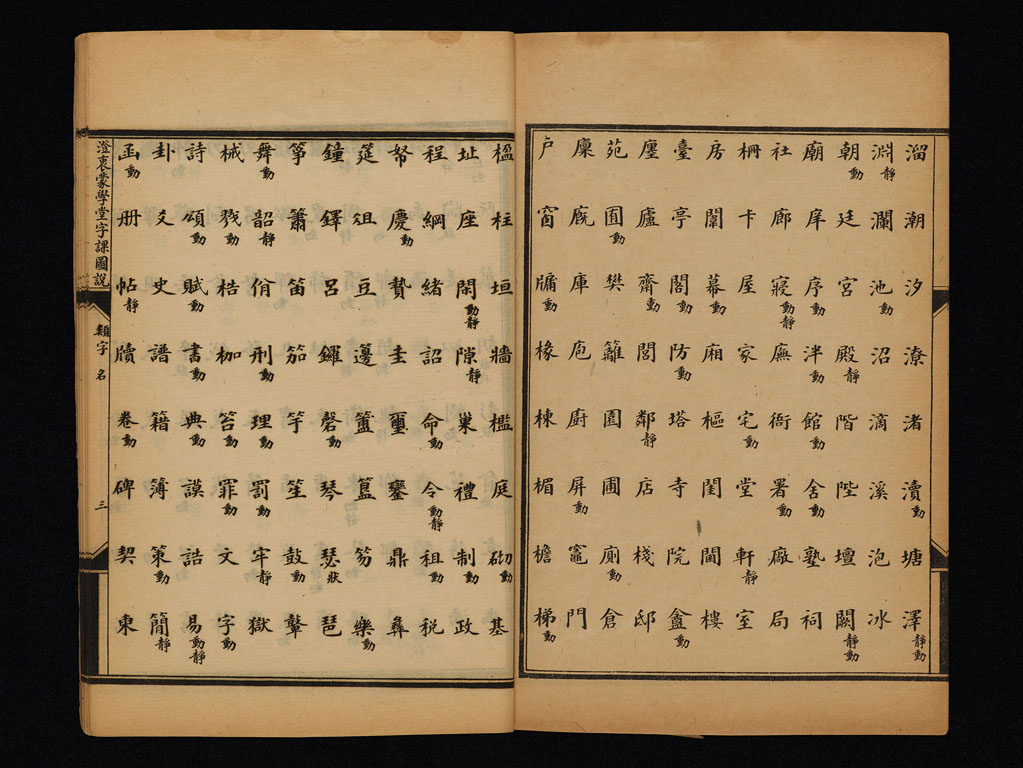 溜潮汐潦渚瀆塘澤靜動
淵靜瀾池動沼滴溪泡冰
朝動廷宮殿靜階陛壇闕靜動
廟庠序動泮動館動舍動塾祠
社廊寢動靜廡衙署動廠局
柵卡屋家宅動堂軒靜室
房闈幕動廂樞閨閭樓
臺亭閣動防動塔寺院盦動
廛廬齋動閻鄰靜店棧邸
苑囿動樊籬園圃廁動倉
廩廐庫庖廚屏動竈門
戶窗牖動椽棟楣檐梯動
楹柱垣牆檻庭砌動基
址座閑動靜隙靜巢禮制動政
程綱緒詔命動令動靜租動稅
帑慶動贄圭璽鑾鼎彝
筵俎豆籩簠簋笏樂動
鐘鐸呂鑼磬動琴瑟狀琶
箏簫笛笳竽笙鼓動鼙
舞動韶靜佾刑動理動罰動牢靜獄
械戮動梏枷笞動罪動文字動
詩頌動賦動書動典動謨誥易動靜
卦爻史譜籍簿策動簡靜
函動冊帖靜牘卷動碑契柬
澄衷蒙學堂字課圖說
類字 名
三